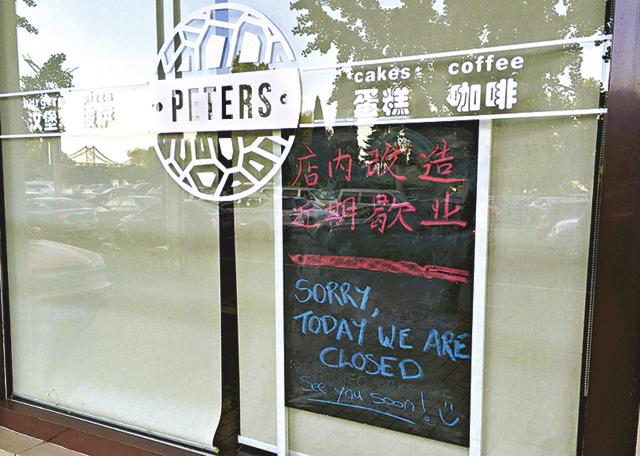 PETERS
cakes coffee
汉堡 蛋糕 咖啡
店内改造
近期歇业
SORRY,
TODAY WE ARE
CLOSED
see you soon!